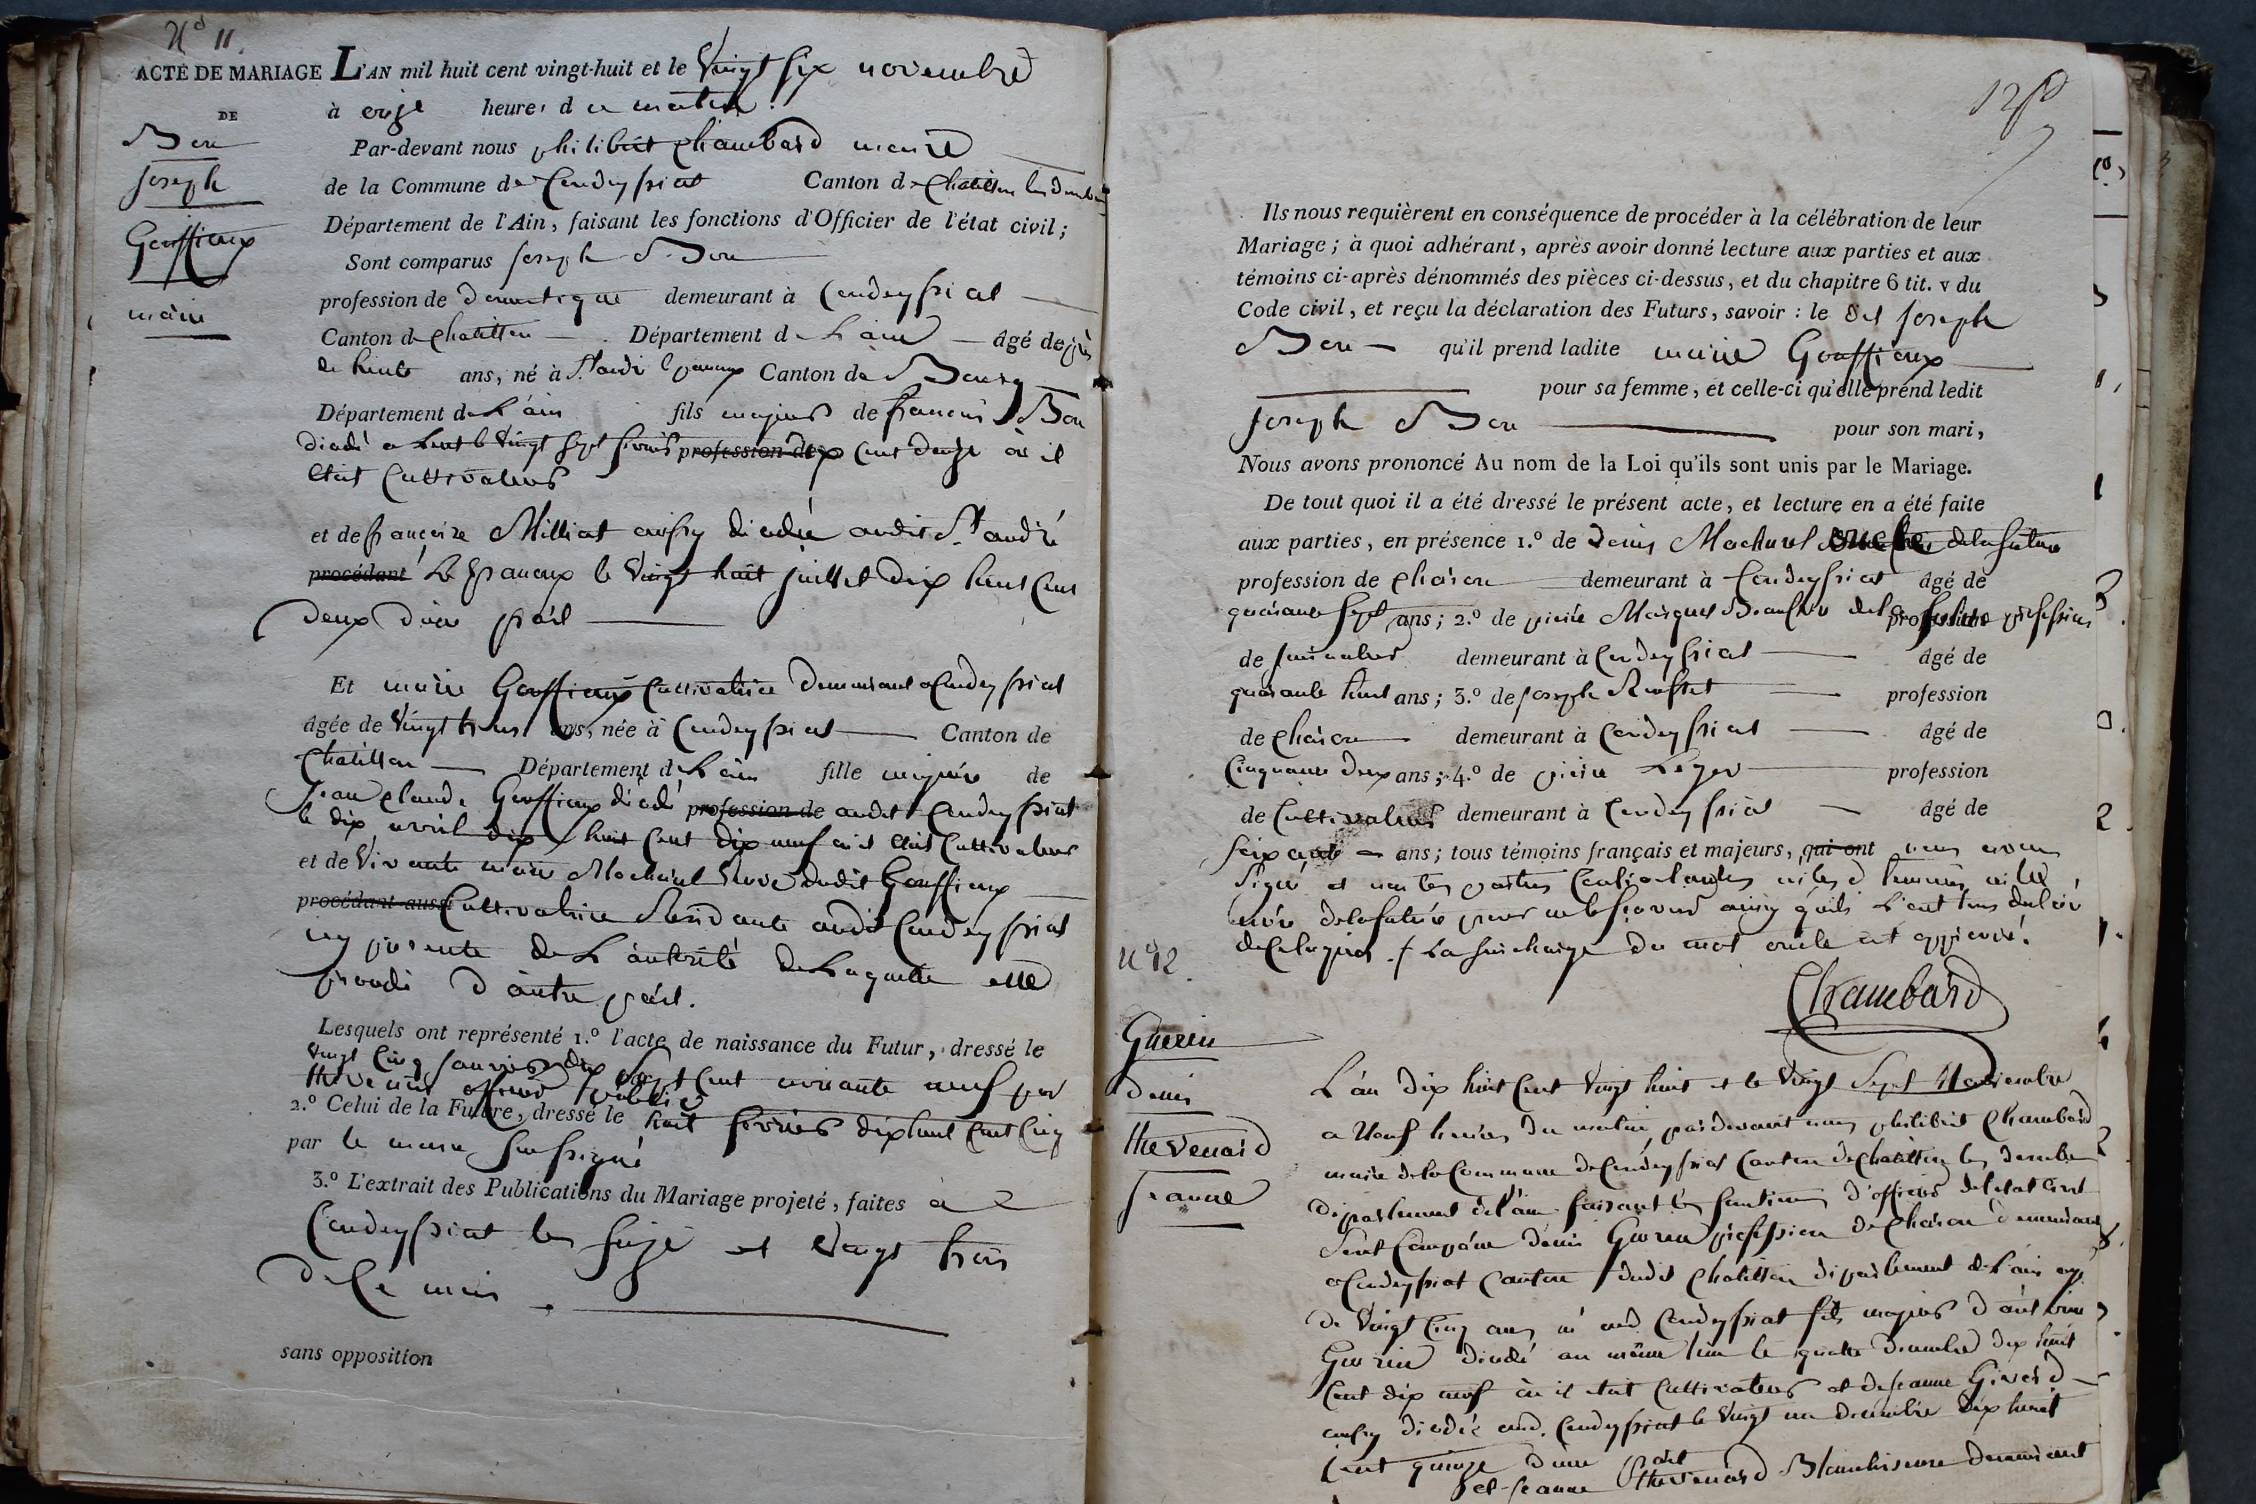 N° 11.
ACTE DE MARIAGE
DE
Bon
Joseph
Gouffieux
marie
L'AN mil huit cent vingt-huit et le Vingt six novembre
à onze heures du matin.
Par-devant nous philibert Chambard maire
de la Commune de Condeyssiat Canton de Chatillon les dombes
Département de l'Ain, faisant les fonctions d'Officier de l'état civil;
Sont comparus Joseph Bon
profession de domestique demeurant à Condeyssiat
Canton de Chatillon Département de L'ain âgé de près
de trente ans, né à St andré le panoux Canton de Bourg
Département de L'ain fils majeur de francois Bon
décédé a Lent le Vingt sept profession de cent douze où il
etait Cultivateur
et de francoise Milliat aussy décédée audit St andré
procédant Le panoux le Vingt huit juillet dix huit Cent
deux d'une part
Et marie Gouffieux Cultivatrice demeurant a Condeyssiat
âgée de Vingt trois ans, née à Condeyssiat Canton de
Chatillon Département de L'ain fille majeure de
Jean Claude Gouffieux décédé profession de audit Condeyssiat
le dix avril dix huit Cent dix neuf où il etait Cultivateur
et de Vivante marie Machurel Veuve dudit Gouffieux
procédant aussi Cultivatrice Residante audit Condeyssiat
icy presente de L'autorité de Laquelle elle
procede d'autre part.
Lesquels ont représenté 1.° l'acte de naissance du Futur, dressé le
Vingt Cinq Janvier dix Sept Cent nonante neuf par
thevenin officier public
2.° Celui de la Future, dressé le huit fevrier dix huit Cent Cinq
par le maire Soussigné
3.° L'extrait des Publications du Mariage projeté, faites à
Condeyssiat les Seize et Vingt trois
de Ce mois
sans opposition
Ils nous requièrent en conséquence de procéder à la célébration de leur
Mariage; à quoi adhérant, après avoir donné lecture aux parties et aux
témoins ci-après dénommés des pièces ci-dessus, et du chapitre 6 tit. v du
Code civil, et reçu la déclaration des Futurs, savoir: le dit Joseph
Bon qu'il prend ladite marie Gouffieux
pour sa femme, et celle-ci qu'elle prend ledit
Joseph Bon pour son mari,
Nous avons prononcé Au nom de la Loi qu'ils sont unis par le Mariage.
De tout quoi il a été dressé le présent acte, et lecture en a été faite
aux parties, en présence 1.° de Denis Machurel oncle de la future
profession de Charon demeurant à Condeyssiat âgé de
quarante sept ans; 2.° de pierre Marquet Beaufrere de la future profession
de demeurant à Condeyssiat âgé de
quarante huit ans; 3.° de Joseph profession
de Charon demeurant à Condeyssiat âgé de
Cinquante deux ans; 4.° de pierre Leger profession
de Cultivateur demeurant à Condeyssiat âgé de
soixante ans; tous témoins français et majeurs, qui ont nous avons
Signé et non les parties Contractantes ni les temoins ni la
mere de la future pour ne le Scavoir ainsy qu'ils L'ont tous declaré
de Ce Requis. La Surcharge du mot oncle est approuvé.
Chambard
N° 12.
Guerin
denis
thevenard
jeanne
L'an dix huit Cent Vingt huit et le Vingt Sept Novembre
a Neuf heures du matin, pardevant nous philibert Chambard
maire de la Commune de Condeyssiat Canton de Chatillon les dombes
departement de l'ain faisant les fonctions d'officier de l'etat Civil
Sont Comparu denis Guerin profession de Charon demeurant
a Condeyssiat Canton dudit Chatillon departement de L'ain agé
de Vingt Cinq ans né aud. Condeyssiat fils majeur d'antoine
Guerin décédé au même lieu le quatre decembre dix huit
Cent dix neuf où il etait Cultivateur et de Jeanne Girerd
aussy décédée aud. Condeyssiat le Vingt un decembre dix huit
Cent quinze d'une part
et Jeanne thevenard Blanchisseuse demeurant